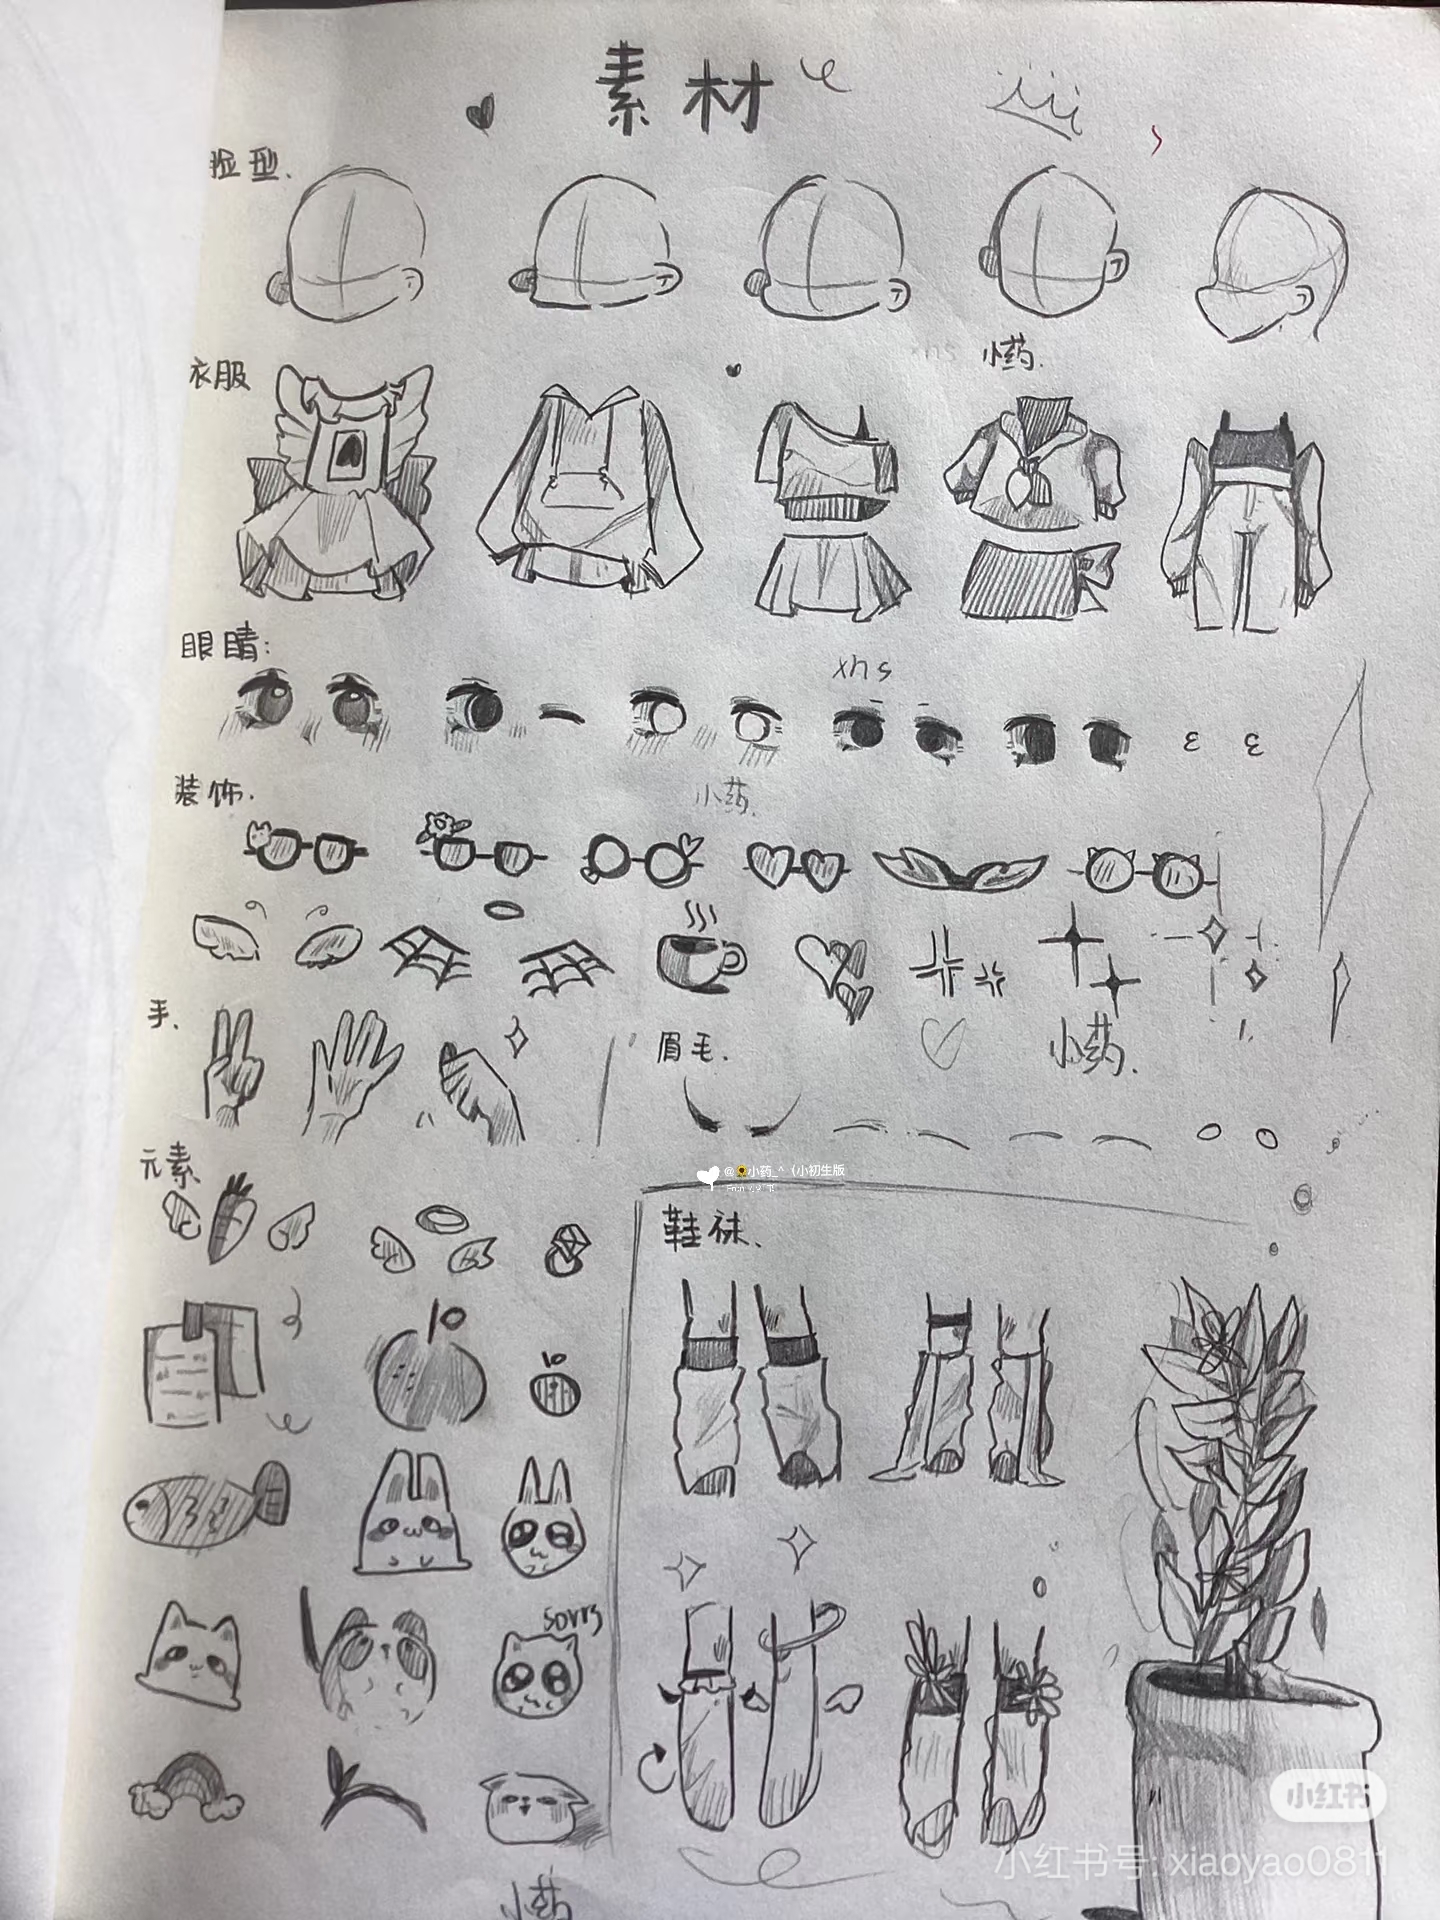 素材
脸型.
xns 小药.
衣服
眼睛:
xns
装饰.
小药.
手、
眉毛.
小药.
元素
@🌻小药_^（小初生版
鞋袜、
sorry
小红书
小红书号: xiaoyao0811
小药